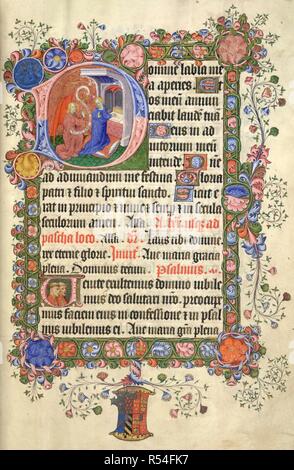 Domine labia me
a aperies. Et
os meū annūci
abit laudē tuā.
Deus in ad
iutorium meū
intende.
ad adiuuandum me festina Gloria
patri & filio & spiritui sancto. Sicut e
rat in principio & nunc & semper & in secula
seculorum amen
pascha loco. Laus tibi domine
rex eterne glorie. Aue maria gracia
plena. Dominus tecum. Psalmus.
Uenite exultemus domino iubile
mus deo salutari nro. preocupe
mus faciem eius in confessione & in psal
mis iubilemus ei. Aue maria grā plena
alamy
Image ID: R54FK7
www.alamy.com